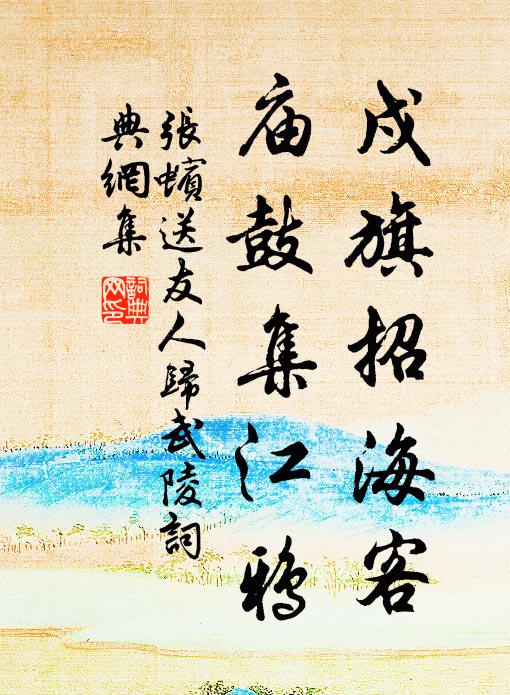 戍旗招海客
庙鼓集江鸦
張蠙送友人歸武陵詞
典網集
詞典
网印